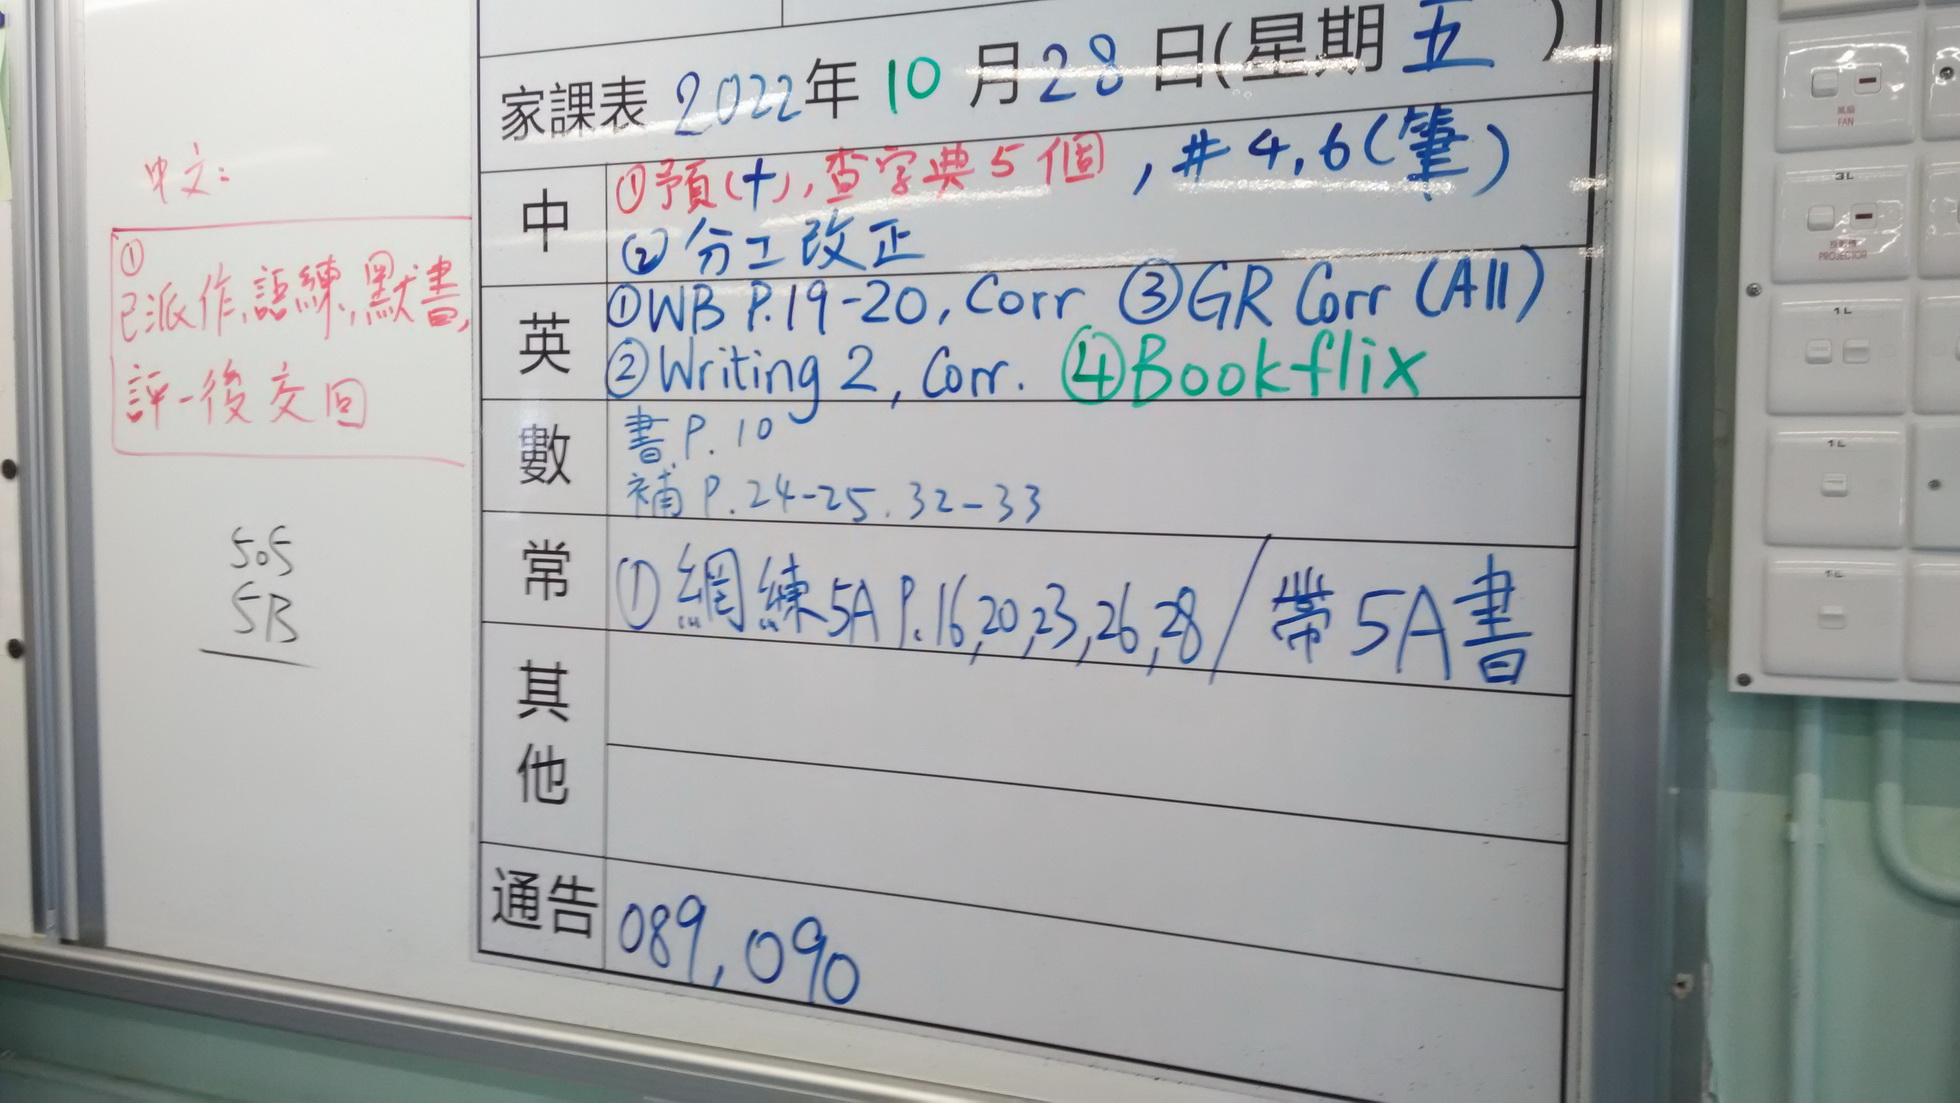 家課表 2022年 10 月 28 日(星期 五 )
中
①預(十),查字典5個 , #4,6(筆)
② 分工改正
英
①WB P.19-20, Corr ③GR Corr (All)
②Writing 2, Corr. ④Bookflix
數
書 P. 10
補 P. 24-25. 32-33
常
① 網練5A P.16,20,23,26,28/帶5A書
其他
通告
089, 090
中文:
①
已派作,語練,默書,
評一後交回
505
5B
風扇
FAN
3L
投影機
PROJECTOR
1L
1L
1L